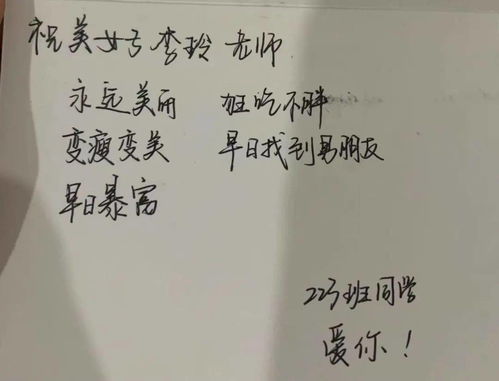 祝美女子李玲老师
永远美丽 狂吃不胖
变瘦变美 早日找到男朋友
早日暴富
223班同学
爱你！